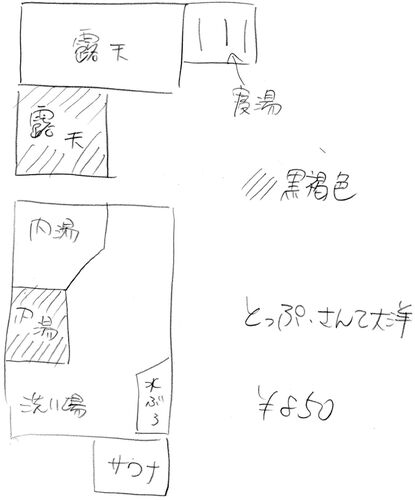 露天
寝湯
露天
黒褐色
内湯
内湯
とっぷ・さんて大洋
洗い場
水ぶろ
¥850
サウナ